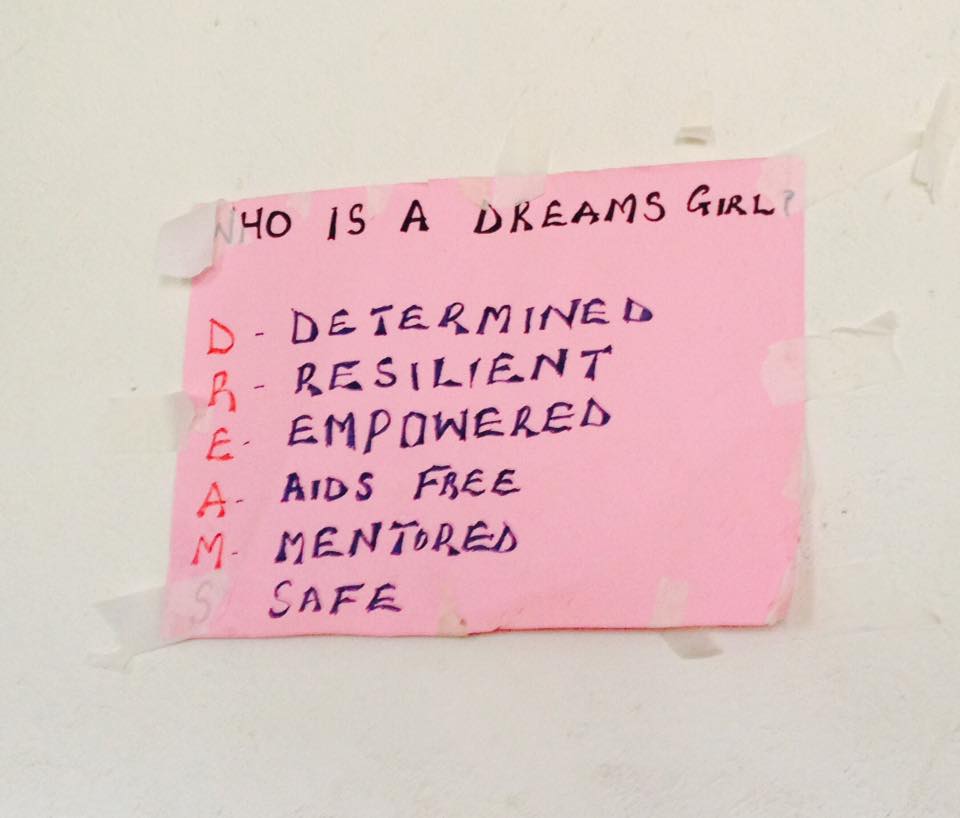 WHO IS A DREAMS GIRL?
D - DETERMINED
R - RESILIENT
E - EMPOWERED
A - AIDS FREE
M - MENTORED
S SAFE